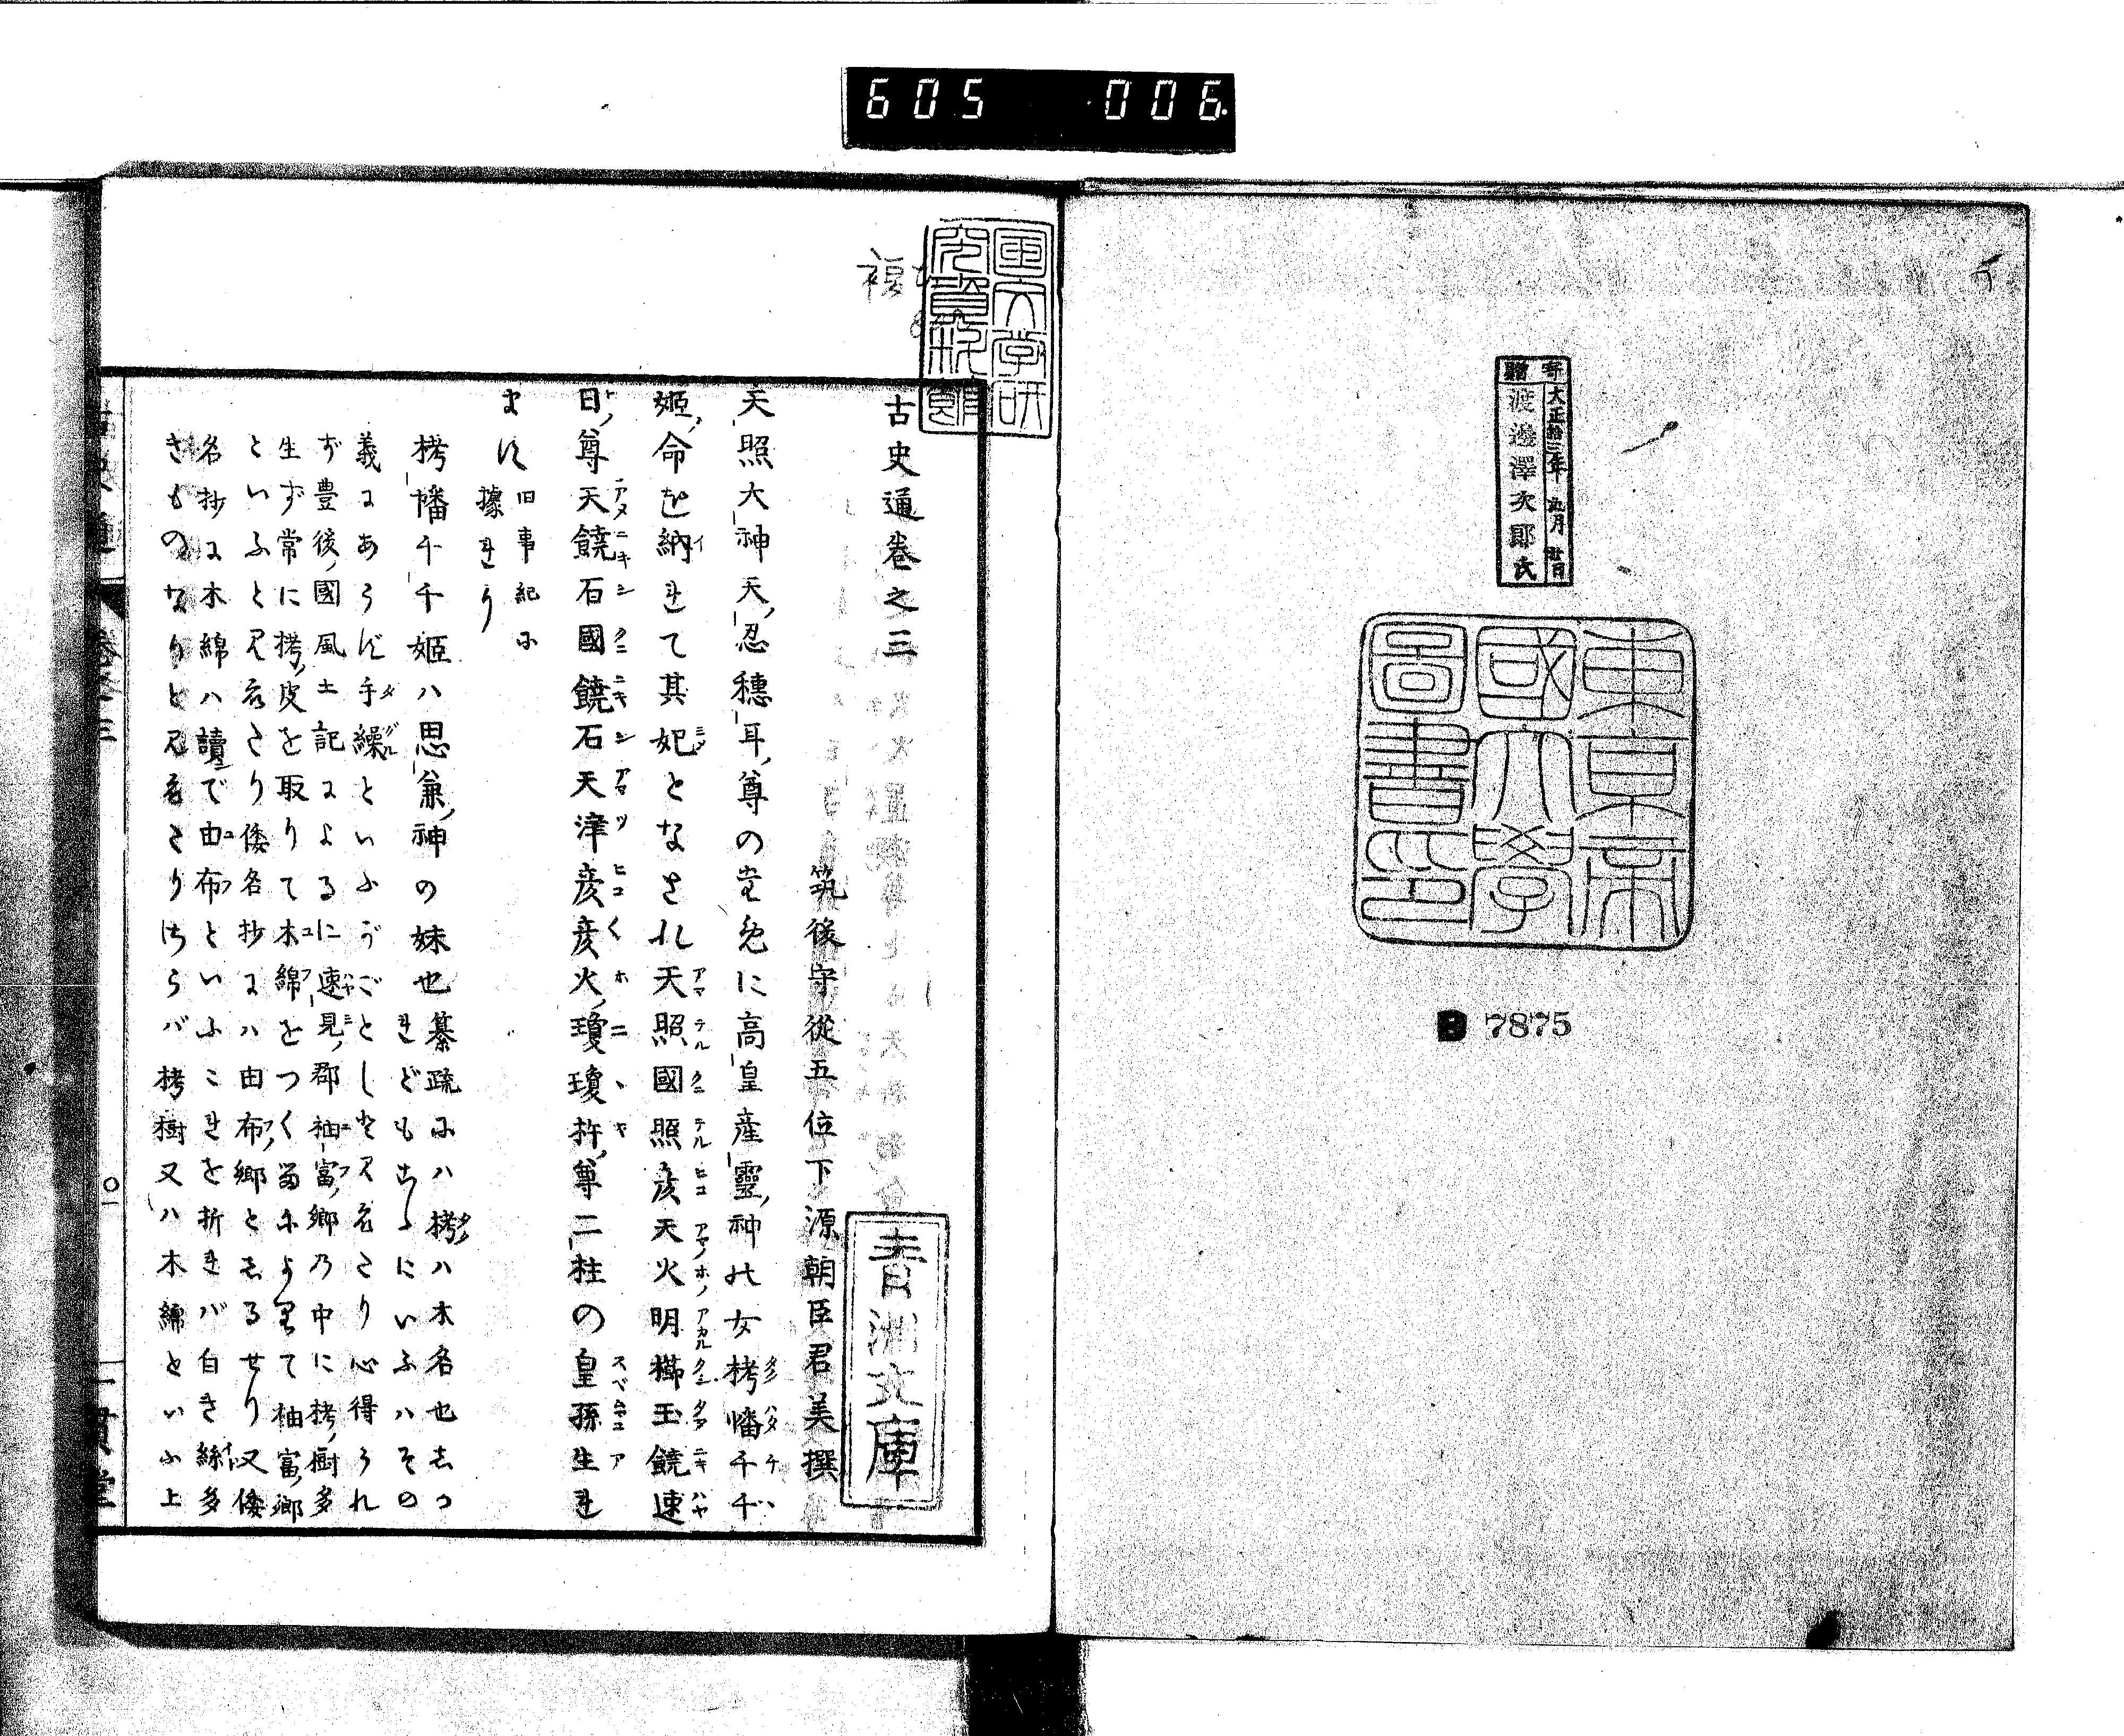 605 006
寄贈
大正拾三年 九月 廿日
渡邊澤次郎氏
東京帝
國大學
圖書印
B 7875
國文学研
究資料館
複
青淵文庫
古史通卷之三
筑後守從五位下源朝臣君美撰
天照大神天忍穗耳尊の先に高皇産靈神の女栲幡千千
姫命を納れて其妃となされ天照國照彦天火明櫛玉饒速
日尊天饒石國饒石天津彦彦火瓊瓊杵尊二柱の皇孫生れ
ます
旧事紀に
據れり
栲幡千千姫ハ思兼神の妹也
纂疏にハ栲ハ木名也しつ
れどもこゝにいふハその
義にあらず手繰といふがごとしと見えたり心得られ
ず豊後國風土記によるに速見郡柚富郷乃中に栲樹多
生ず常に栲皮を取りて木綿をつくるによりて柚富郷
といふと見えたり倭名抄にハ由布郷としるせり又倭
名抄に木綿ハ讀で由布といふこれを折れバ白き絲多
きものなりと見えたりさらバ栲樹又ハ木綿といふ上
古史通
卷之三
〇一
一貫堂